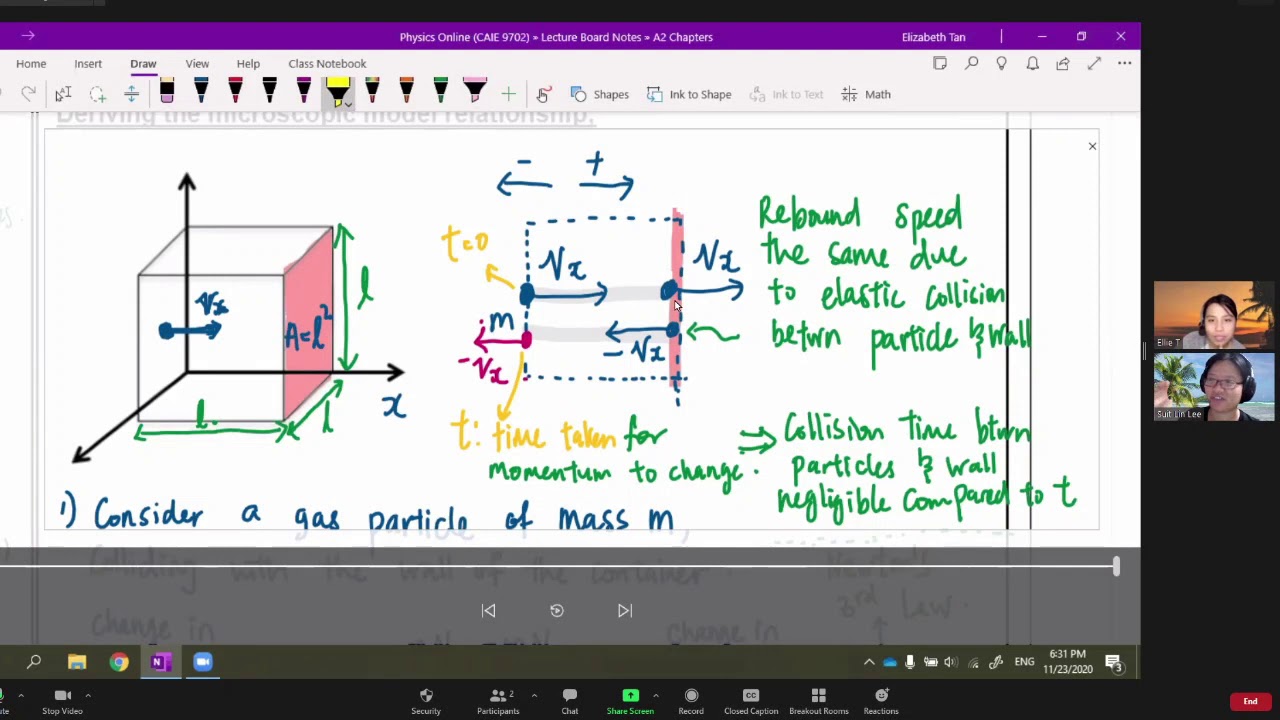 Physics Online (CAIE 9702) » Lecture Board Notes » A2 Chapters
Elizabeth Tan
Home Insert Draw View Help Class Notebook
Shapes Ink to Shape Ink to Text Math
Deriving the microscopic model relationship;
- +
t=0
Vx Vx
Vx
l
A=l²
m
-Vx
-Vx
x
l
l
Rebound speed
the same due
to elastic collision
betwn particle & wall
t: time taken for
momentum to change.
⇒ Collision time btwn
particles & wall
negligible compared to t
1) Consider a gas particle of mass m
colliding with the wall of the container
Newton's
3rd Law.
change in
change in
Ellie T
Suit Lin Lee
6:31 PM
ENG
11/23/2020
3
Stop Video
Security
Participants 2
Chat
Share Screen
Record
Closed Caption
Breakout Rooms
Reactions
End